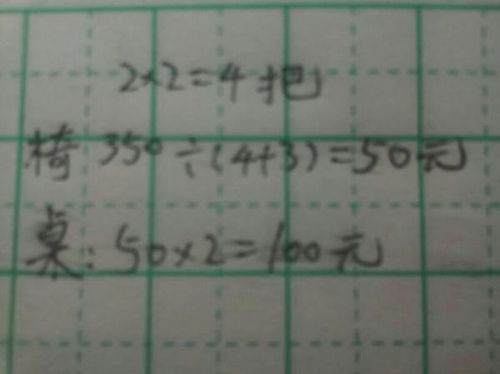 2×2=4把
椅 350÷(4+3)=50元
桌:50×2=100元